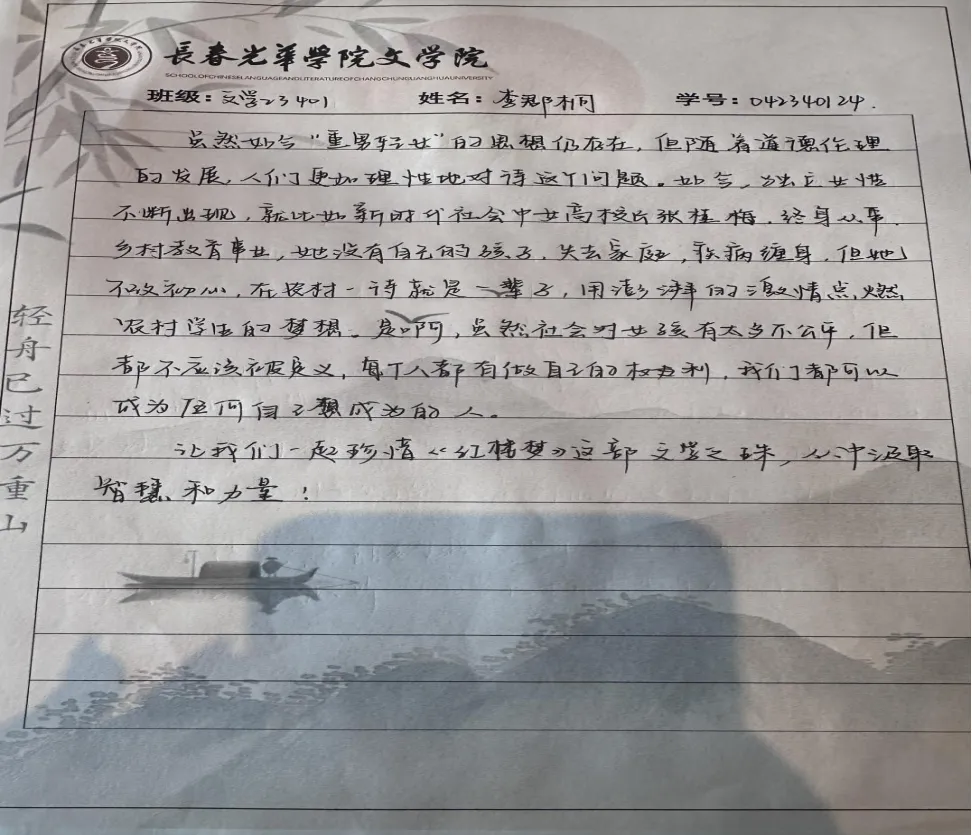 長春光華學院文学院
SCHOOLOFCHINESELANGUAGEANDLITERATUREOFCHANGCHUNGUANGHUAUNIVERSITY
班级：文学23401 姓名：李郡桐 学号：042340124.
虽然如今“重男轻女”的思想仍存在，但随着道德伦理
的发展，人们更加理性地对待这个问题。如今，独立女性
不断出现，就比如新时代社会中女高校长张桂梅，终身从事
乡村教育事业，她没有自己的孩子，失去家庭，疾病缠身，但她
不改初心，在农村一待就是一辈子，用澎湃的激情点燃
农村学生的梦想。是啊，虽然社会对女孩有太多不公平，但
都不应该被定义，每个人都有做自己的权利，我们都可以
成为任何自己想成为的人。
让我们一起珍惜《红楼梦》这部文学之珠，从中汲取
智慧和力量！
轻舟已过万重山